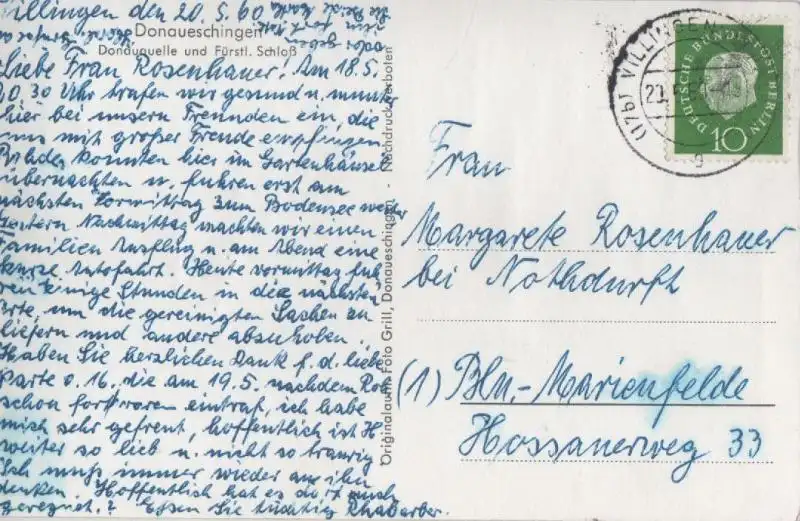 Villingen den 20.5.60
Donaueschingen
Donauquelle und Fürstl. Schloß
Liebe Frau Rosenhauer! Am 18.5.
20 30 Uhr trafen wir gesund u. munter
hier bei unsern Freunden ein, die
uns mit großer Freude empfingen
konnten hier im Gartenhäusel
übernachten u. fuhren erst am
nächsten Vormittag zum Bodensee weiter
Gestern Nachmittag machten wir einen
Familien Ausflug u. am Abend eine
kurze Autofahrt. Heute vormittag
einige Stunden in die nächsten
Orte, um die gereinigten Sachen zu
liefern und andere abzuholen.
Haben Sie herzlichen Dank f. d. liebe
Karte v. 16. die am 19.5. nachdem
schon fort waren eintraf, ich habe
mich sehr gefreut, hoffentlich ist H.
weiter so lieb u. nicht so traurig
Ich muß immer wieder an ihn
denken. Hoffentlich hat es dort auch
geregnet.? Essen Sie tüchtig Rhabarber.
Originalaufn. Foto Grill, Donaueschingen - Nachdruck verboten
(17b) VILLINGEN
DEUTSCHE BUNDESPOST BERLIN
10
Frau
Margarete Rosenhauer
bei Nothdurft
(1) Bln.-Marienfelde
Hossauerweg 33